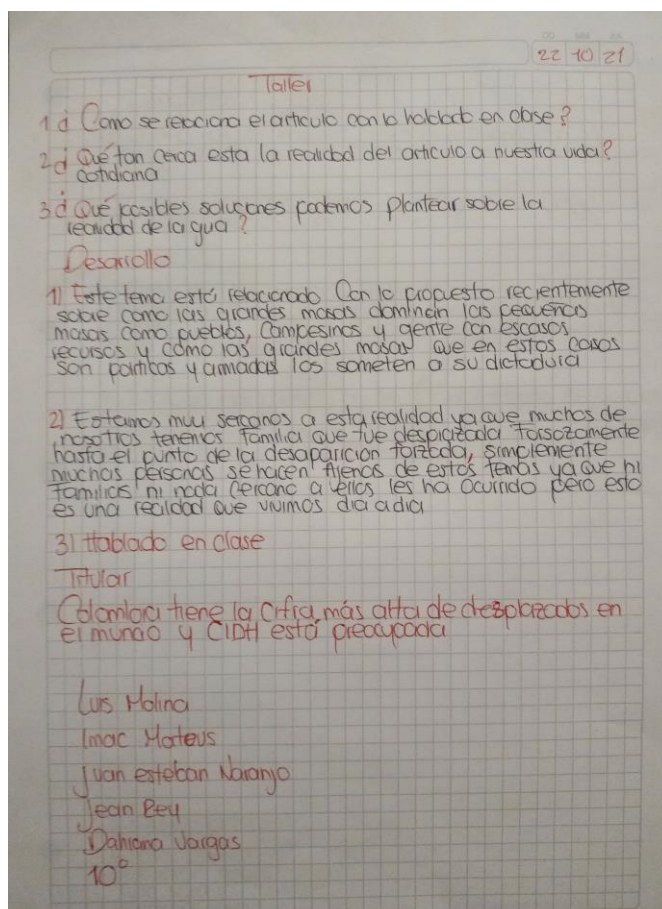 DD MM AA
22 10 21
Taller
1 ¿ Como se relaciona el articulo con lo hablado en clase?
2 ¿ Qué tan cerca esta la realidad del articulo a nuestra vida?
cotidiana
3 ¿ Qué posibles soluciones podemos plantear sobre la
realidad de la gua?
Desarrollo
1) Este tema está relacionado Con lo propuesto recientemente
sobre como las grandes masas dominan las pequeñas
masas como pueblos, Campesinos y gente con escasos
recursos y cómo las grandes masas que en estos casos
son politicos y armadas los someten a su dictadura
2) Estamos muy sercanos a esta realidad ya que muchos de
nosotros tenemos familia que fue desplazada forsozamente
hasta el punto de la desaparicion forzada, simplemente
muchas personas se hacen Ajenas de estos temas ya que ni
familias ni nada cercano a ellos les ha ocurrido pero esto
es una realidad que vivimos dia a dia
3) Hablado en clase
Titular
Colombia tiene la Cifra más alta de desplazados en
el mundo y CIDH está preocupada
Luis Molina
Imac Mateus
Juan esteban Naranjo
Jean Rey
Dahiana Vargas
10°